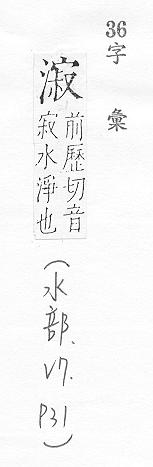 36字彙
漃
前歷切音
寂水淨也
(水部. V7. P31)